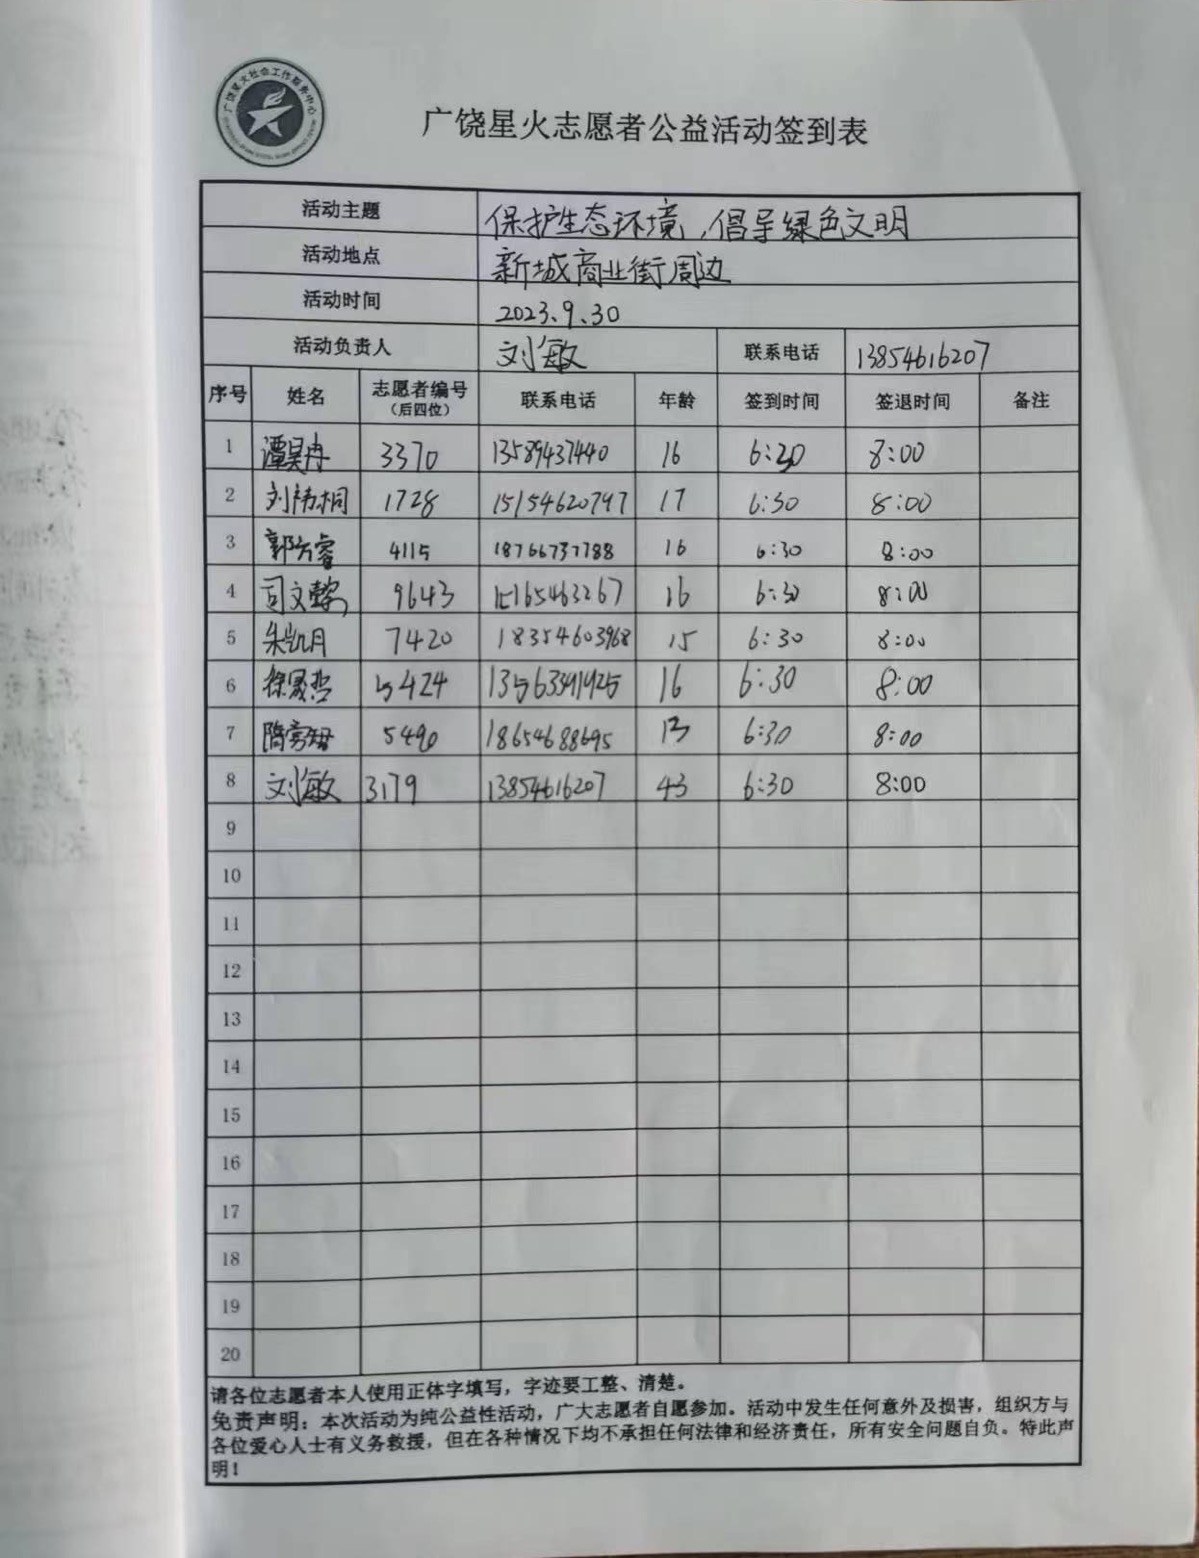 广饶星火社会工作服务中心
广饶星火志愿者公益活动签到表
活动主题 保护生态环境,倡导绿色文明
活动地点 新城商业街周边
活动时间 2023.9.30
活动负责人 刘敏 联系电话 13854616207
序号 姓名 志愿者编号(后四位) 联系电话 年龄 签到时间 签退时间 备注
1 谭昊冉 3370 13589437440 16 6:30 8:00
2 刘祎桐 1728 15154620797 17 6:30 8:00
3 郭方睿 4115 18766737788 16 6:30 8:00
4 司文馨 9643 15165463267 16 6:30 8:00
5 朱凯月 7420 18354603968 15 6:30 8:00
6 徐晟哲 5424 13563391925 16 6:30 8:00
7 隋 5490 18654688695 13 6:30 8:00
8 刘敏 3179 13854616207 43 6:30 8:00
9
10
11
12
13
14
15
16
17
18
19
20
请各位志愿者本人使用正体字填写,字迹要工整、清楚。
免责声明:本次活动为纯公益性活动,广大志愿者自愿参加。活动中发生任何意外及损害,组织方与
各位爱心人士有义务救援,但在各种情况下均不承担任何法律和经济责任,所有安全问题自负。特此声
明!